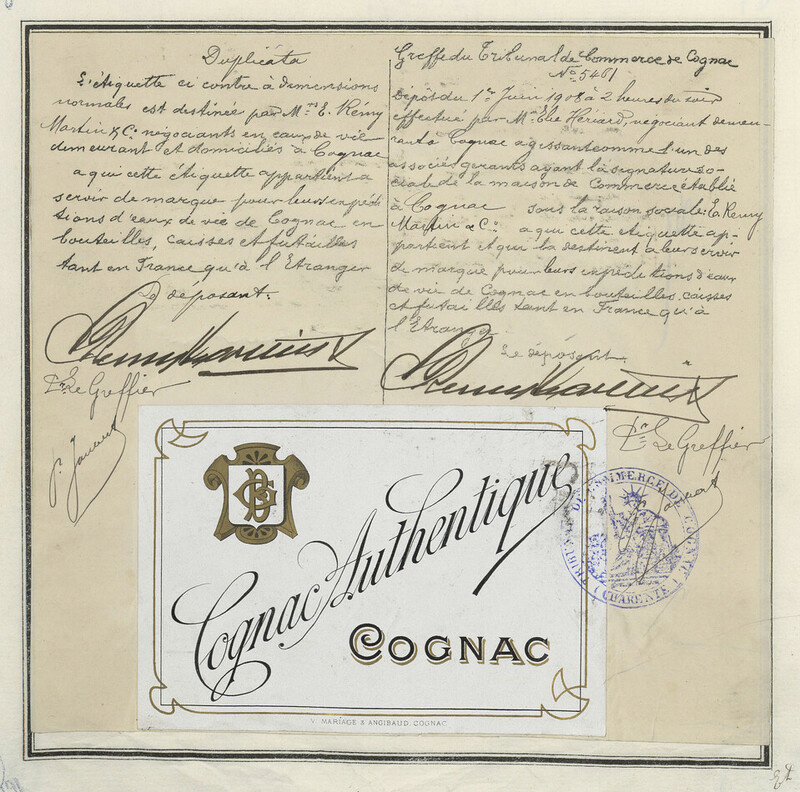 Duplicata
L'étiquette ci contre à dimensions
normales est destinée par Mrs E. Rémy
Martin & Co négociants en eaux de vie
demeurant et domiciliés à Cognac
a qui cette étiquette appartient a
servir de marque pour leurs expédi
tions d'eaux de vie de Cognac en
bouteilles, caisses et futailles
tant en France qu'à l'Etranger
Le déposant.
Pr Le Greffier
Greffe du Tribunal de Commerce de Cognac
No 5461
Dépôt du 1er Juin 1908 à 2 heures du soir
effectué par Mr Elie Hériard, négociant demeu-
rant à Cognac agissant comme l'un des
associés gérants ayant la signature so-
ciale de la maison de Commerce établie
à Cognac sous la raison sociale: E. Remy
Martin & Co a qui cette étiquette ap-
partient et qui la destinent a leur servir
de marque pour leurs expéditions d'eaux
de vie de Cognac en bouteilles, caisses
et futailles tant en France qu'à
l'Etranger
Le déposant
Pr Le Greffier
TRIBUNAL DE COMMERCE DE COGNAC
(CHARENTE)
Cognac Authentique
COGNAC
V. MARIAGE & ANGIBAUD. COGNAC